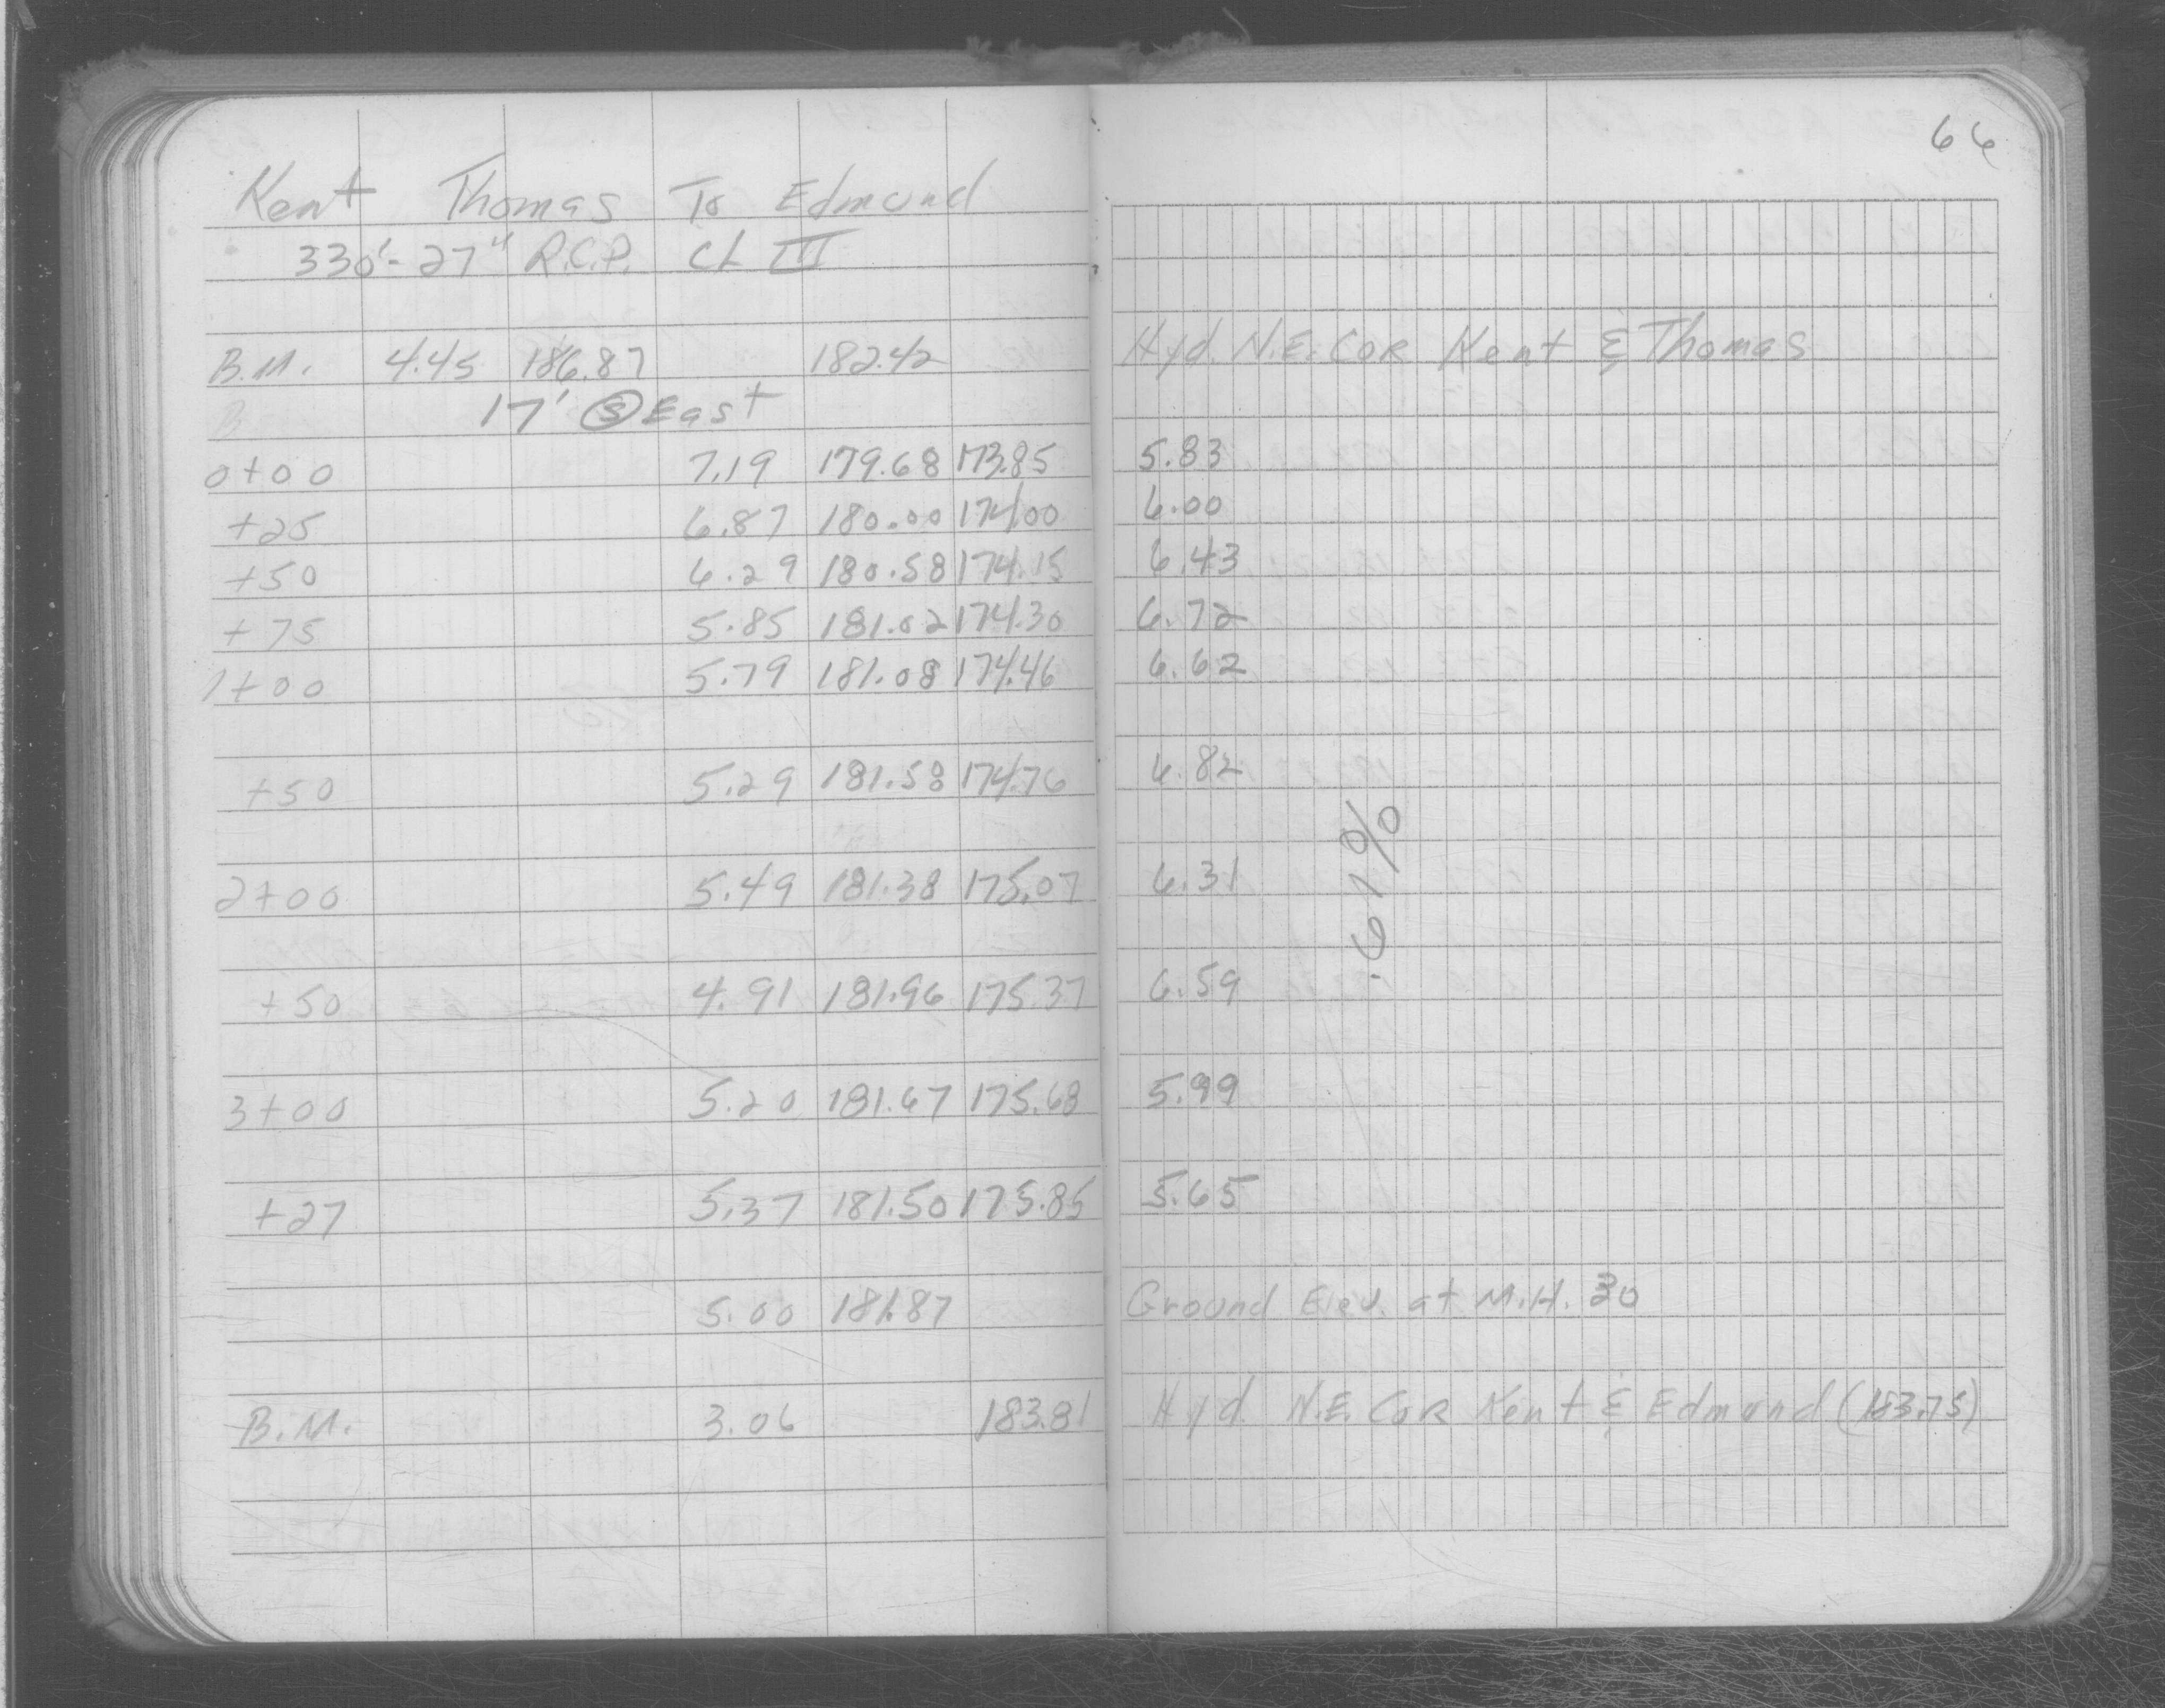 66
Kent Thomas To Edmund
330'- 27" R.C.P. CL III
B.M. 4.45 186.87 182.42 Hyd. N.E. COR Kent & Thomas
17' Ⓢ East
0+00 7.19 179.68 173.85 5.83
+25 6.87 180.00 174.00 6.00
+50 6.29 180.58 174.15 6.43
+75 5.85 181.02 174.30 6.72
1+00 5.79 181.08 174.46 6.62
+50 5.29 181.58 174.76 6.82
.61%
2+00 5.49 181.38 175.07 6.31
+50 4.91 181.96 175.37 6.59
3+00 5.20 181.67 175.68 5.99
+27 5.37 181.50 175.85 5.65
5.00 181.87 Ground Elev. at M.H. 30
B.M. 3.06 183.81 Hyd. N.E. COR Kent & Edmund (183.75)